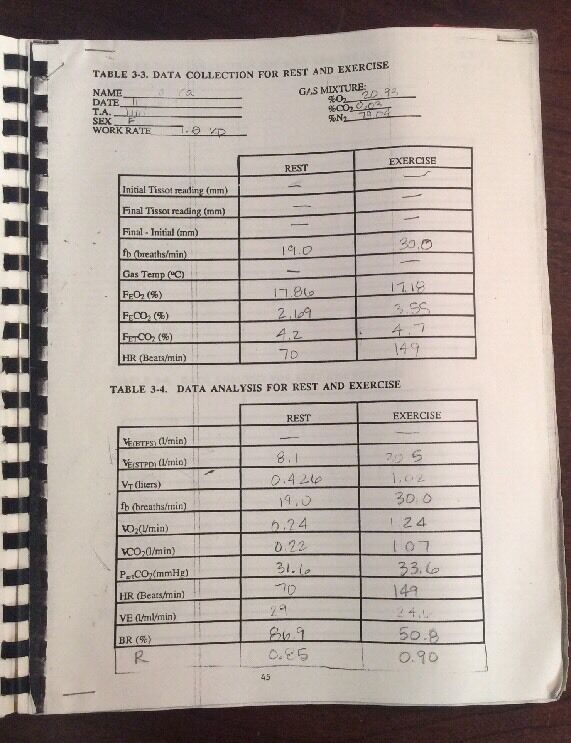 TABLE 3-3. DATA COLLECTION FOR REST AND EXERCISE
NAME
GAS MIXTURE:
%O2 20.93
DATE
%CO2 0.03
T.A.
%N2 79.04
SEX F
WORK RATE
REST EXERCISE
Initial Tissot reading (mm) — —
Final Tissot reading (mm) — —
Final - Initial (mm) — —
fb (breaths/min) 19.0 30.0
Gas Temp (°C) — —
FEO2 (%) 17.86 17.18
FECO2 (%) 2.169 3.55
FETCO2 (%) 4.2 4.7
HR (Beats/min) 70 149
TABLE 3-4. DATA ANALYSIS FOR REST AND EXERCISE
REST EXERCISE
VE(BTPS) (l/min) —
VE(STPD) (l/min) 8.1
VT (liters) 0.426 1.02
fb (breaths/min) 19.0 30.0
VO2(l/min) 0.24 1.24
VCO2(l/min) 0.22 1.07
PartCO2(mmHg) 31.6 33.6
HR (Beats/min) 70 149
VE (l/ml/min) 29
BR (%) 86.9 50.8
R 0.85 0.90
45